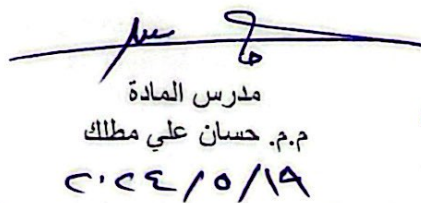 مدرس المادة
م.م. حسان علي مطلك
٢٠٢٤/٥/١٩